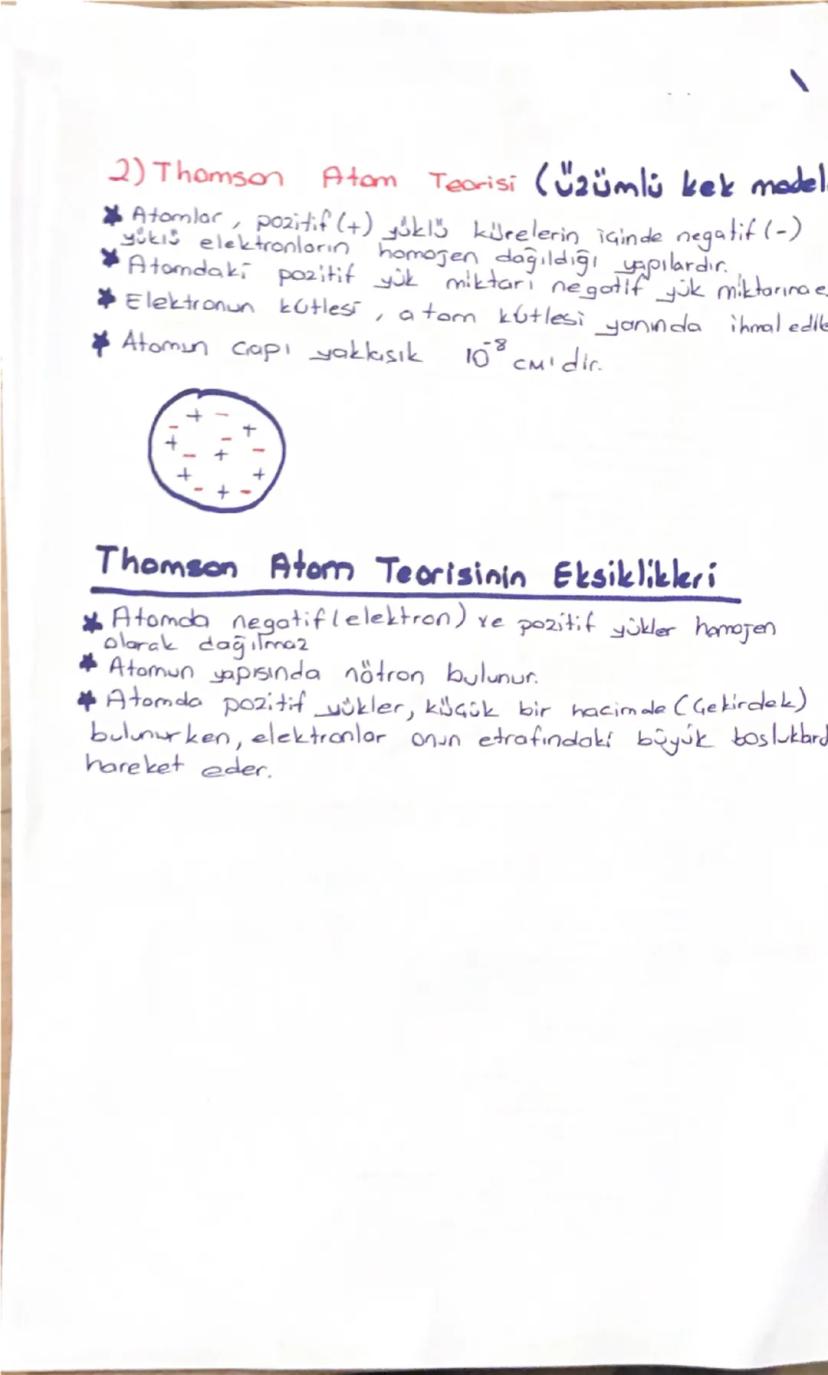 2) Thomson Atom Teorisi (Üzümlü kek model
* Atomlar, pozitif (+) yüklü kürelerin içinde negatif (-)
yüklü elektronların homojen dağıldığı yapılardır.
* Atomdaki pozitif yük miktarı negatif yük miktarına e
* Elektronun kütlesi, atom kütlesi yanında ihmal edile
* Atomun çapı yaklışık 10⁻⁸ cm'dir.
+ -
- +
+ - -
- +
+ +
- + -
Thomson Atom Teorisinin Eksiklikleri
* Atomda negatif (elektron) ve pozitif yükler homojen
olarak dağılmaz
* Atomun yapısında nötron bulunur.
* Atomda pozitif yükler, küçük bir hacimde (Çekirdek)
bulunurken, elektronlar onun etrafındaki büyük boşluklard
hareket eder.